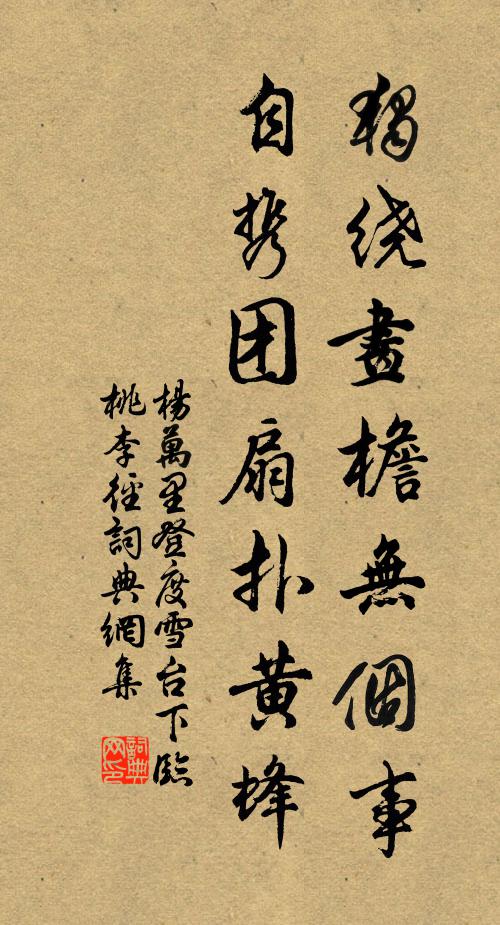 獨绕畫檐無個事
自携团扇扑黄蜂
楊萬里登度雪台下臨
桃李徑詞典網集
詞典网印